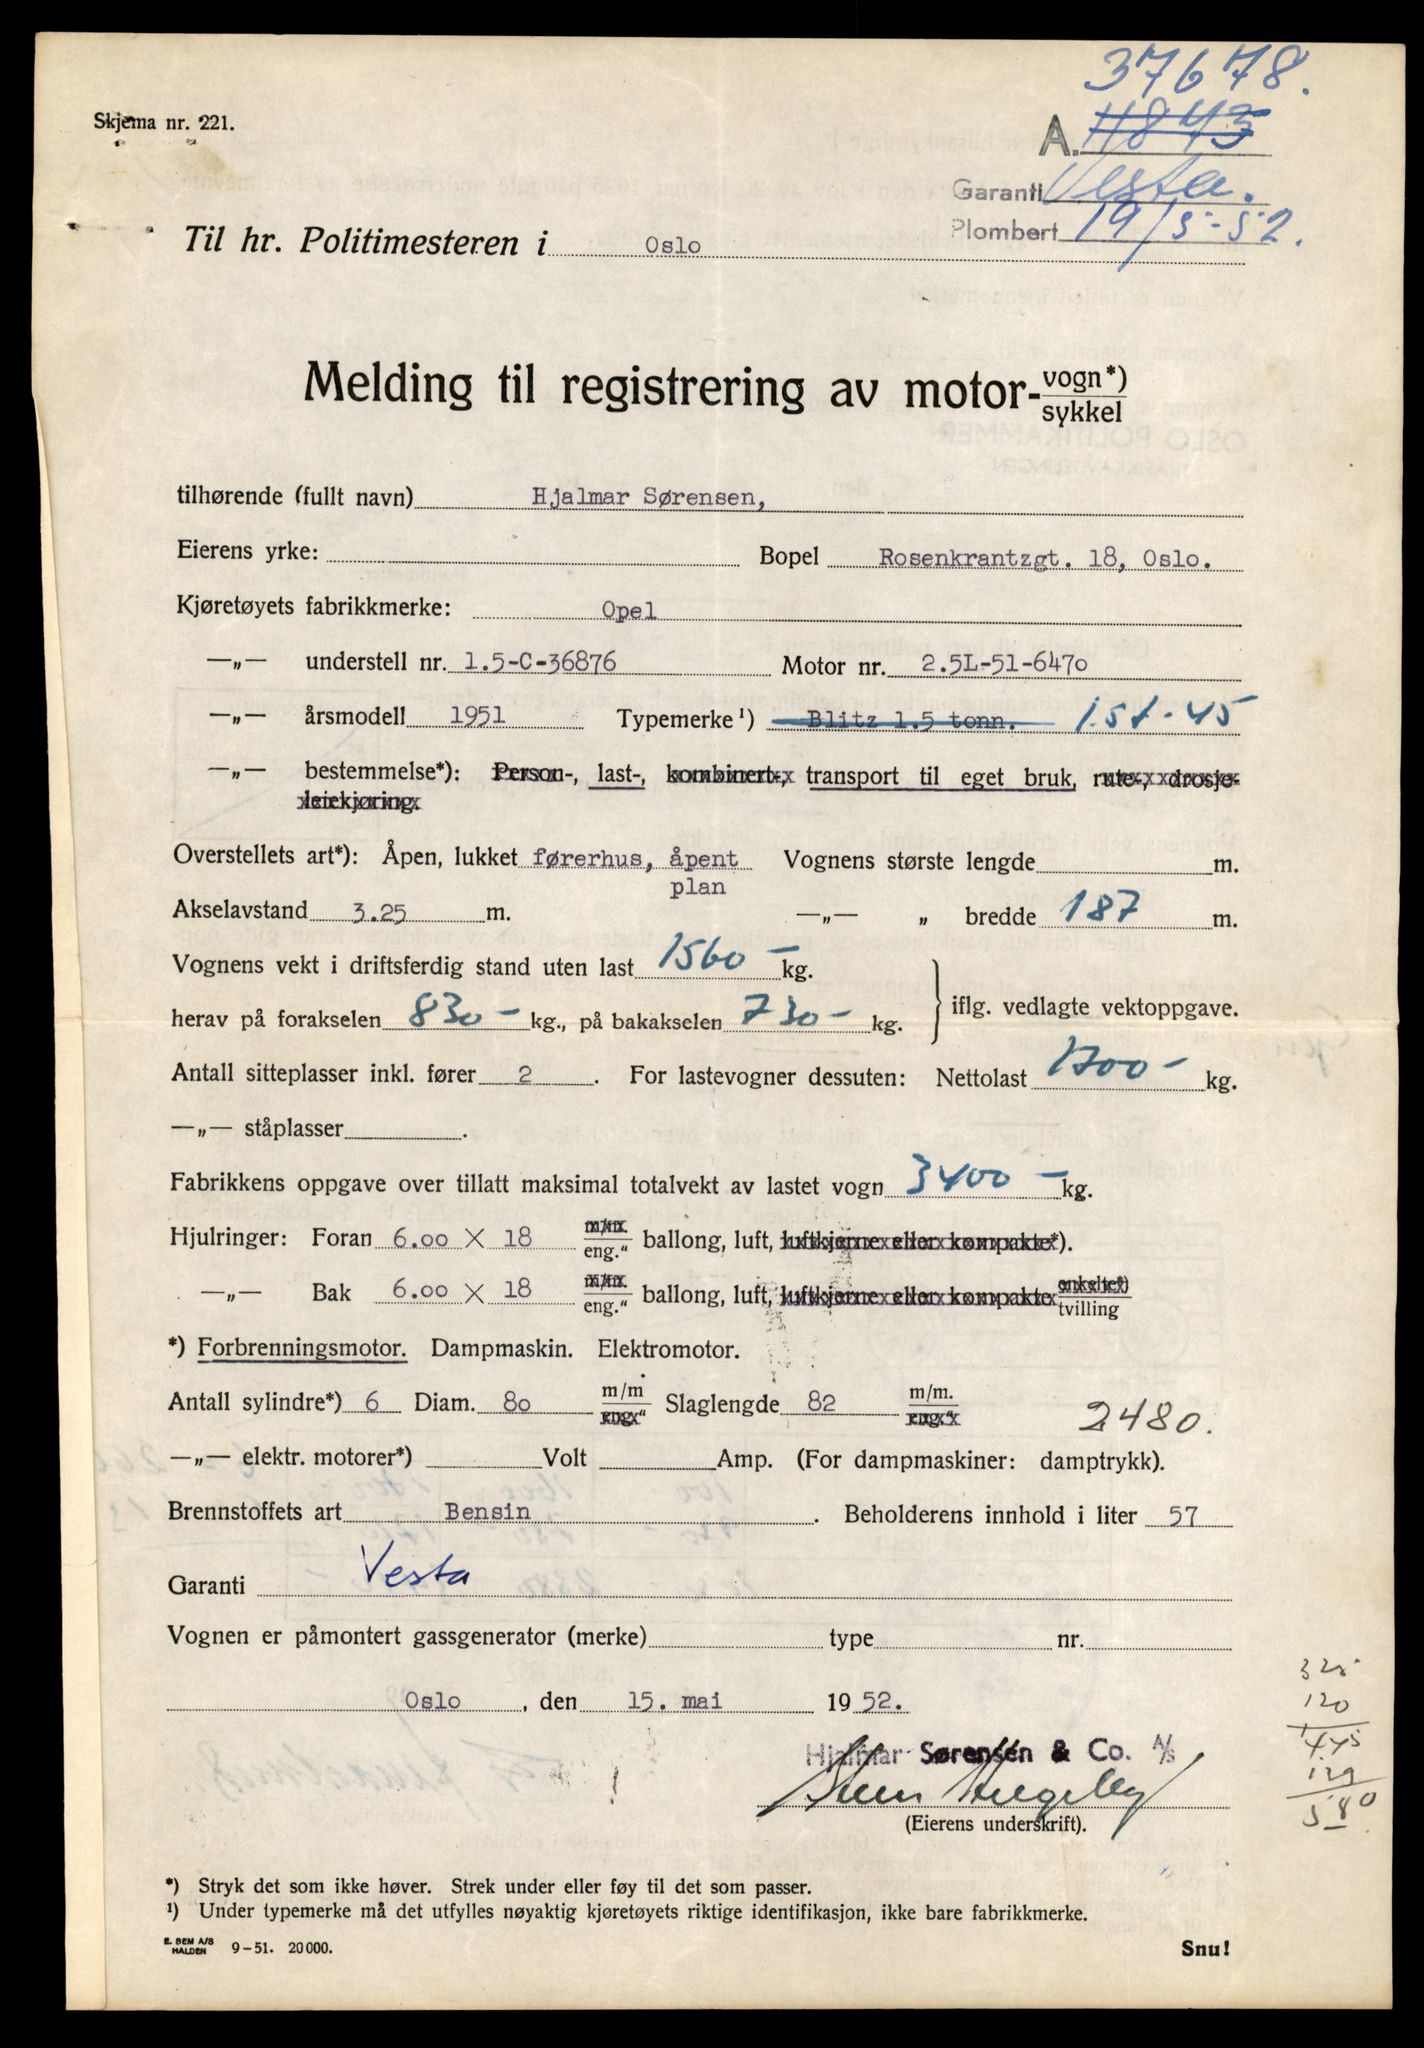 37678.
Skjema nr. 221.
A. 11843
Garanti Vesta.
Plombert 19/5-52.
Til hr. Politimesteren i Oslo
Melding til registrering av motor-vogn*) sykkel
tilhørende (fullt navn) Hjalmar Sørensen,
Eierens yrke: Bopel Rosenkrantzgt. 18, Oslo.
Kjøretøyets fabrikkmerke: Opel
—„— understell nr. 1.5-C-36876 Motor nr. 2.5L-51-6470
—„— årsmodell 1951 Typemerke¹) Blitz 1.5 tonn. 1.5t-45
—„— bestemmelse*): Person-, last-, kombinert-, transport til eget bruk, rute-, drosje-
leiekjøring.
Overstellets art*): Åpen, lukket førerhus, åpent Vognens største lengde m.
plan
Akselavstand 3.25 m. —„— „ bredde 187 m.
Vognens vekt i driftsferdig stand uten last 1560- kg.
herav på forakselen 830- kg., på bakakselen 730- kg. } iflg. vedlagte vektoppgave.
Antall sitteplasser inkl. fører 2. For lastevogner dessuten: Nettolast 1700- kg.
—„— ståplasser .
Fabrikkens oppgave over tillatt maksimal totalvekt av lastet vogn 3400- kg.
Hjulringer: Foran 6.00 X 18 m/m. eng." ballong, luft, luftkjerne eller kompakte*).
—„— Bak 6.00 X 18 m/m. eng." ballong, luft, luftkjerne eller kompakte enkelte*) tvilling
*) Forbrenningsmotor. Dampmaskin. Elektromotor.
Antall sylindre*) 6 Diam. 80 m/m eng." Slaglengde 82 m/m. eng." 2480.
—„— elektr. motorer*) Volt Amp. (For dampmaskiner: damptrykk).
Brennstoffets art Bensin. Beholderens innhold i liter 57
Garanti Vesta
Vognen er påmontert gassgenerator (merke) type nr.
Oslo, den 15. mai 1952.
325
120
445
Hjalmar Sørensen & Co. A/S
580
(Eierens underskrift).
*) Stryk det som ikke høver. Strek under eller føy til det som passer.
¹) Under typemerke må det utfylles nøyaktig kjøretøyets riktige identifikasjon, ikke bare fabrikkmerke.
E. SEM A/S HALDEN 9-51. 20 000. Snu!